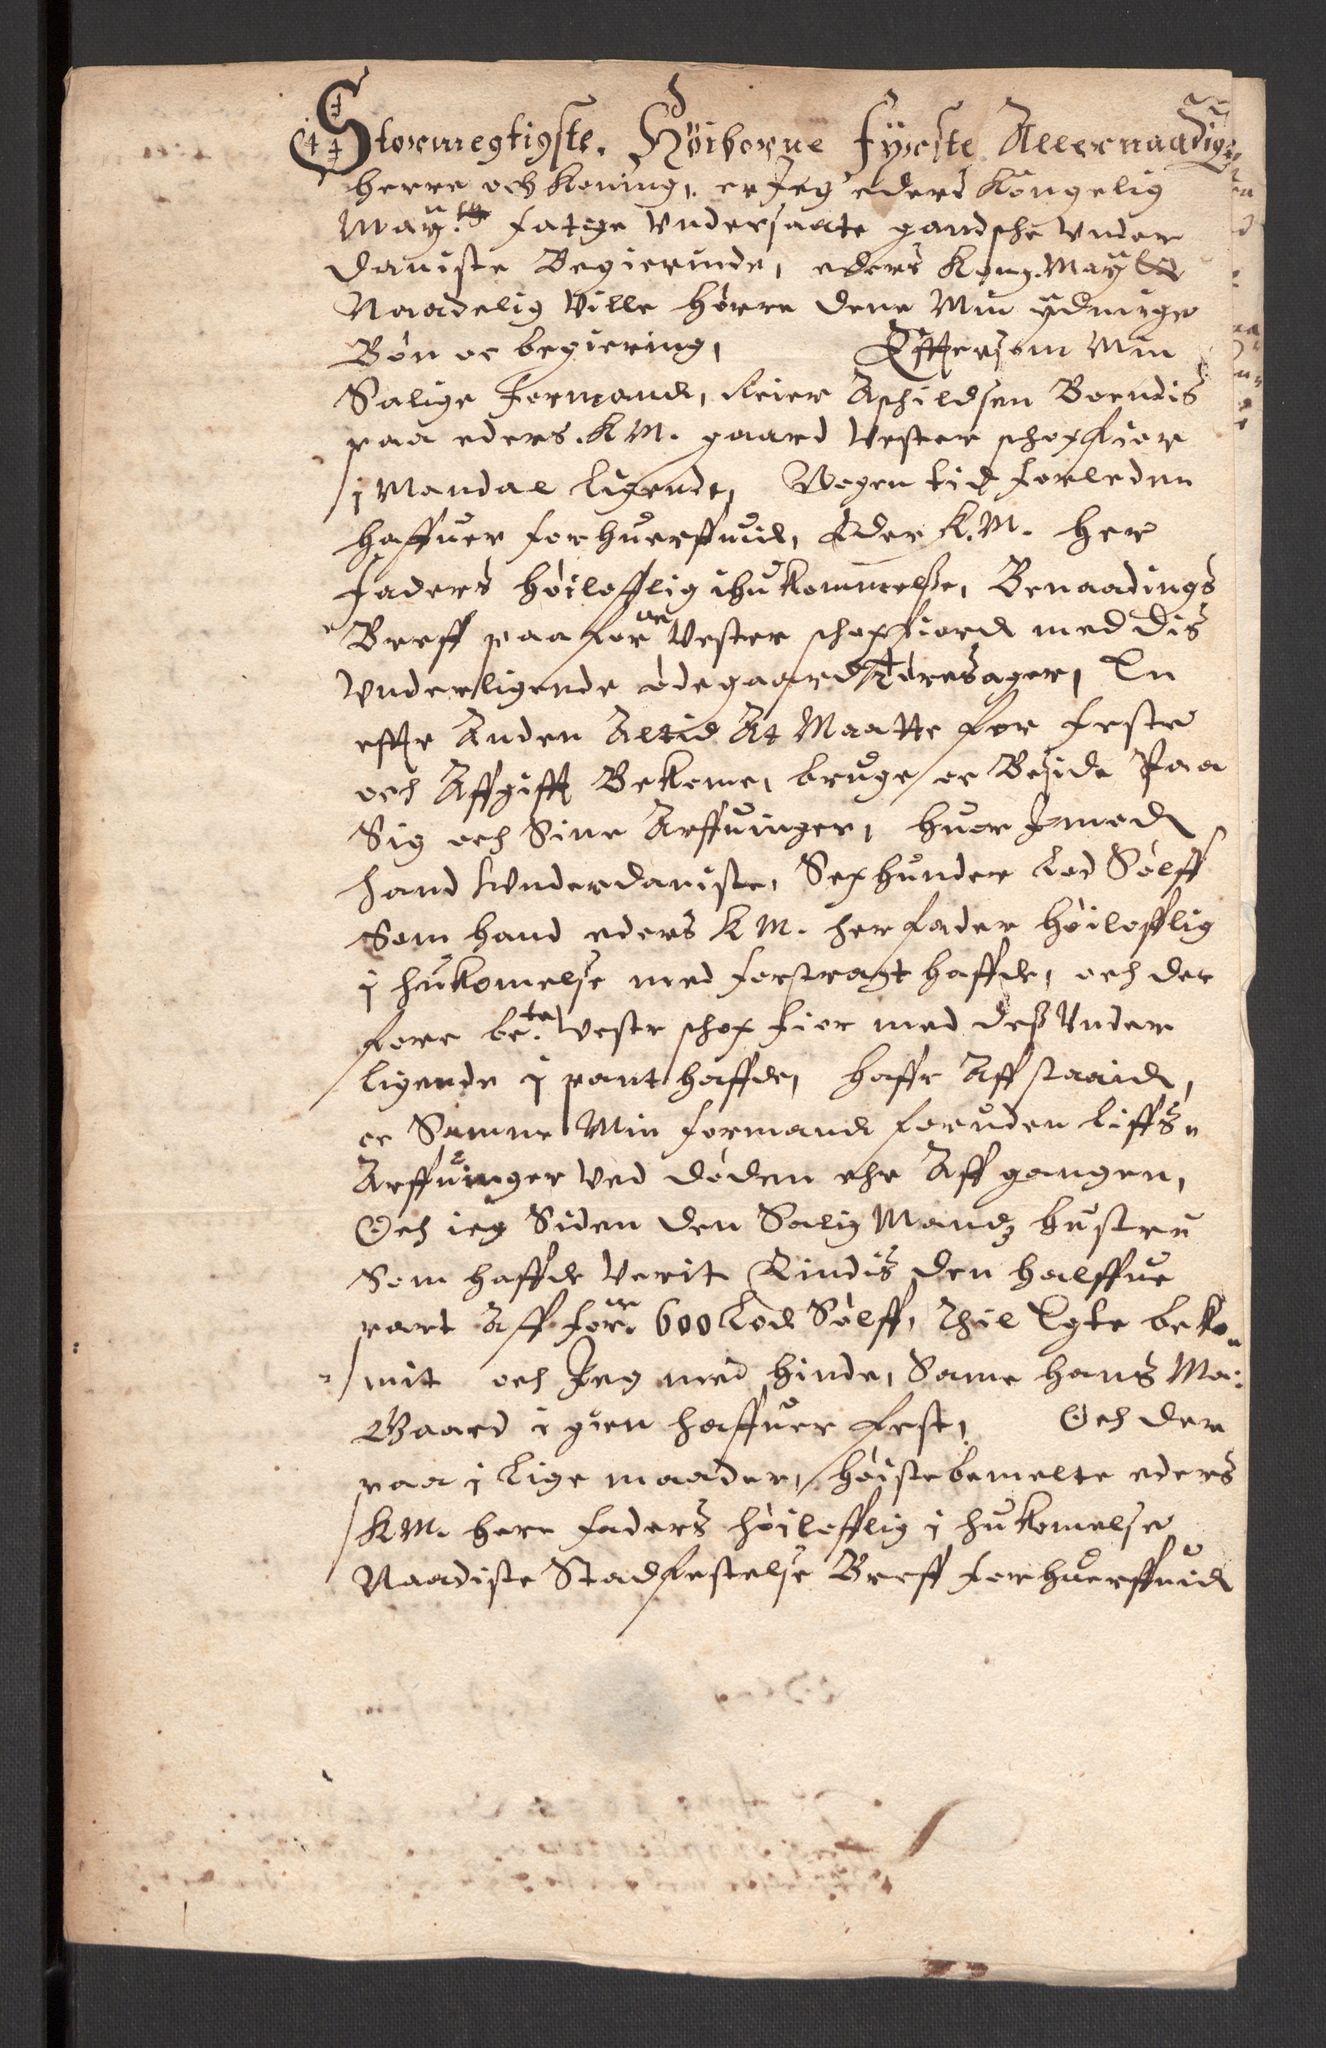 Stormegtigste. Höiborne Fyrste Allernaadigste
herre och Koning, er Jeg eders Kongelig
May:ts fatige Vndersaate gandsche Vnder
daniste Begierinde, eders Kong. May:ts
Naadelig Ville hörre dene Min ydmyge
Bön oc begiering, Effttersom Min
Salige formand, Reier Aschildsen Boendis
paa eders. K M. gaard Vester schopfior
i Mandal ligende, Nogen tid forleden
haffuer forhuerffuid, Eder K. M. Her
faders höilofflig ihukommelsse, Benaadings
Breff paa for.ne Vester schopfiord med dis
Vnderligende ödegaard Töresager, En
effter Anden Altid At Maatte for feste
och Affgifft Bekome, bruge oc Beside Paa
Sig och Sine Arffuinger, huor Jmod
hand Vnderdaniste, Sexhunder Lod Sölff
Som hand eders K M. her fader höilofflig
i hukomelse med forstragt haffde, och der
fore be:te Vestr schop fior med dess Vnder
ligende i pant haffde, haffr Aff staaid,
oc Samme Min formand foruden Liffs
Arffuinger Ved döden ehr Aff gangen,
Och ieg Siden den Salig Mandz hustru
Som haffde Verit Eindis den halffue
part Aff for:ne 600 Lod Sölff, Thil Egte beko
mit och Jeg med hinde, Same hans Ma:
Gaard i gien haffuer fest, Och der
paa i Lige maader, höistbemelte eders
K M. herr faders höilofflig i hukomelse
Naadiste Stadfestelse Breff forhuerffuid